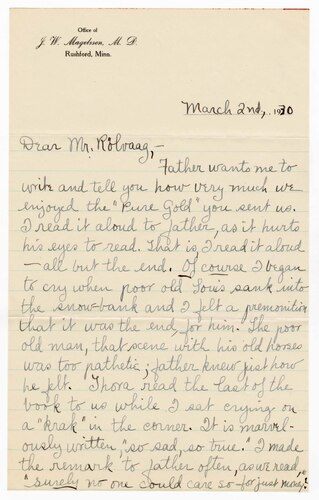 Office of
J. W. Magelssen, M. D.
Rushford, Minn.
March 2nd, 1930
Dear Mr. Rölvaag,-
Father wants me to
write and tell you how very much we
enjoyed the "Pure Gold" you sent us.
I read it aloud to father, as it hurts
his eyes to read. That is, I read it aloud
- all but the end. Of course I began
to cry when poor old Louis sank into
the snow-bank and I felt a premonition
that it was the end for him. The poor
old man, that scene with his old horses
was too pathetic; father knew just how
he felt. Thora read the last of the
book to us while I sat crying on
a "krak" in the corner. It is marvel-
ously written, "so sad, so true." I made
the remark to father often, as we read,
"surely no one could care so for just money."